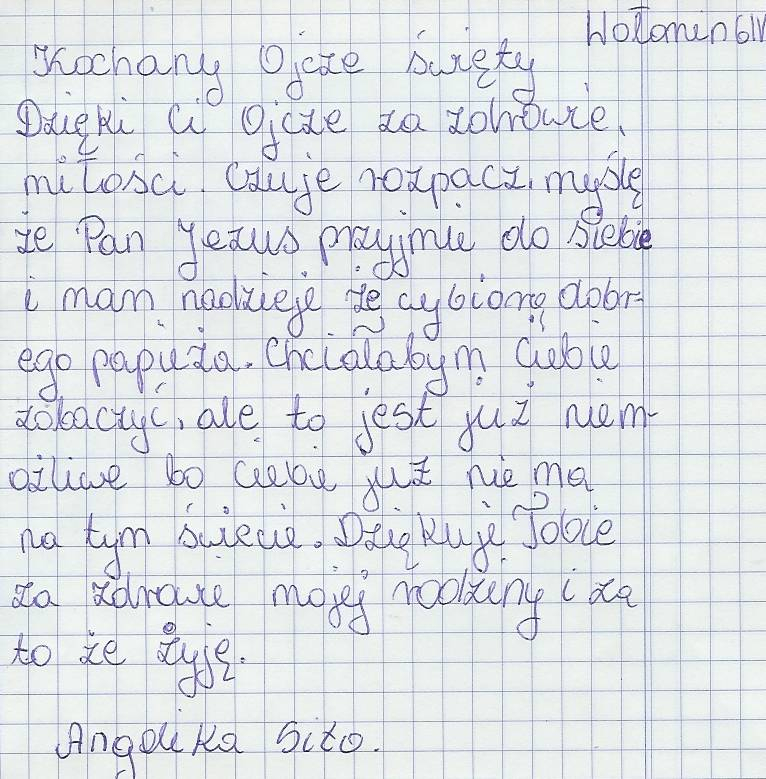 Wołomin 6IV
Kochany Ojcze święty
Dzięki Ci Ojcze za zdrowie,
miłości. Czuje rozpacz, myślę
że Pan Jezus przyjmie do siebie
i mam nadzieje że cybiorą dobr-
ego papieża. Chciałabym Ciebie
zobaczyć, ale to jest już niem-
ożliwe bo Ciebie już nie ma
na tym świecie. Dziękuje Tobie
za zdrowie mojej rodziny i za
to że żyję.
Angelika Sito.